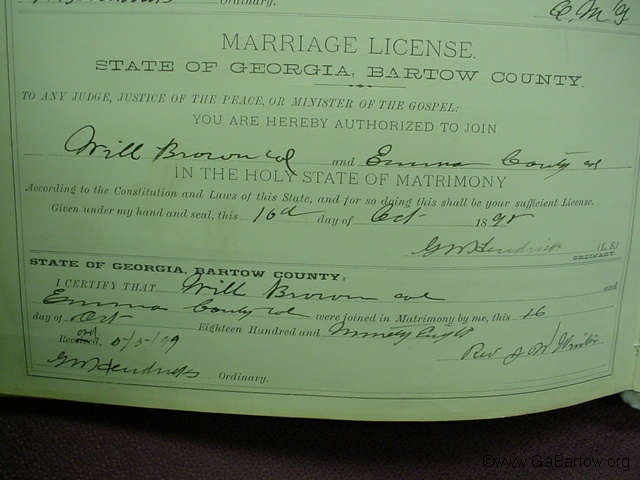 Ordinary.
MARRIAGE LICENSE.
STATE OF GEORGIA, BARTOW COUNTY.
TO ANY JUDGE, JUSTICE OF THE PEACE, OR MINISTER OF THE GOSPEL:
YOU ARE HEREBY AUTHORIZED TO JOIN
Will Brown col and Emma Conty col
IN THE HOLY STATE OF MATRIMONY
According to the Constitution and Laws of this State, and for so doing this shall be your sufficient License.
Given under my hand and seal, this 16d day of Oct 1898
GW Hendricks (L. S.)
ORDINARY.
STATE OF GEORGIA, BARTOW COUNTY:
I CERTIFY THAT Will Brown col and
Emma Conty col were joined in Matrimony by me, this 16
day of Oct Eighteen Hundred and Ninety Eight
Received, 5/99 Rev
GW Hendricks Ordinary.
©www.GaBartow.org